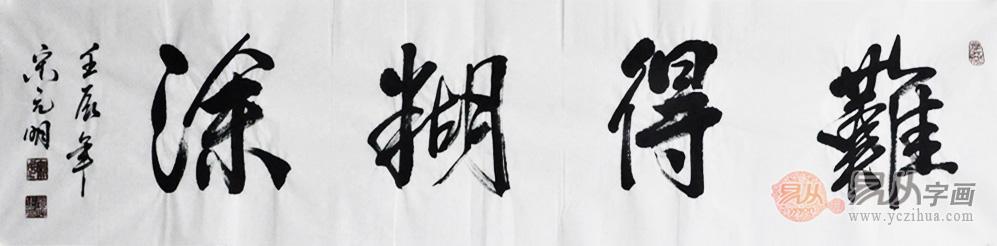 難得糊涂
壬辰年
宋元明
易从字画
www.yczihua.com